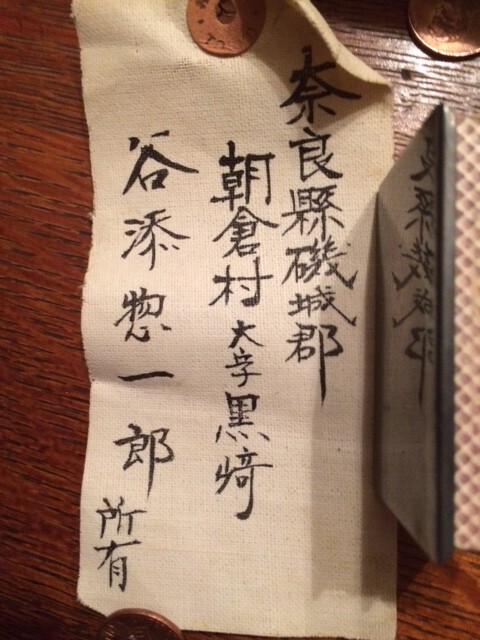 奈良縣磯城郡
朝倉村大字黒﨑
谷添惣一郎所有